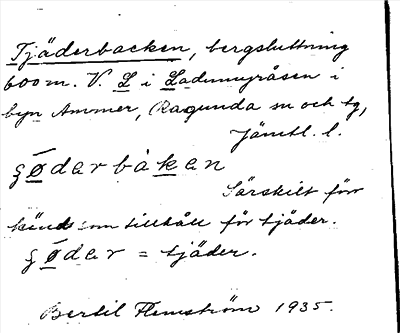 Tjäderbacken, bergsluttning
600 m. V. L i Ladumyråsen i
byn Ammer, Ragunda sn och tg,
Jämtl. l.
ȿø̄darbàkan
Särskilt förr
känd som tillhåll för tjäder.
ȿø̄dar = tjäder.
Bertil Flemström 1935.